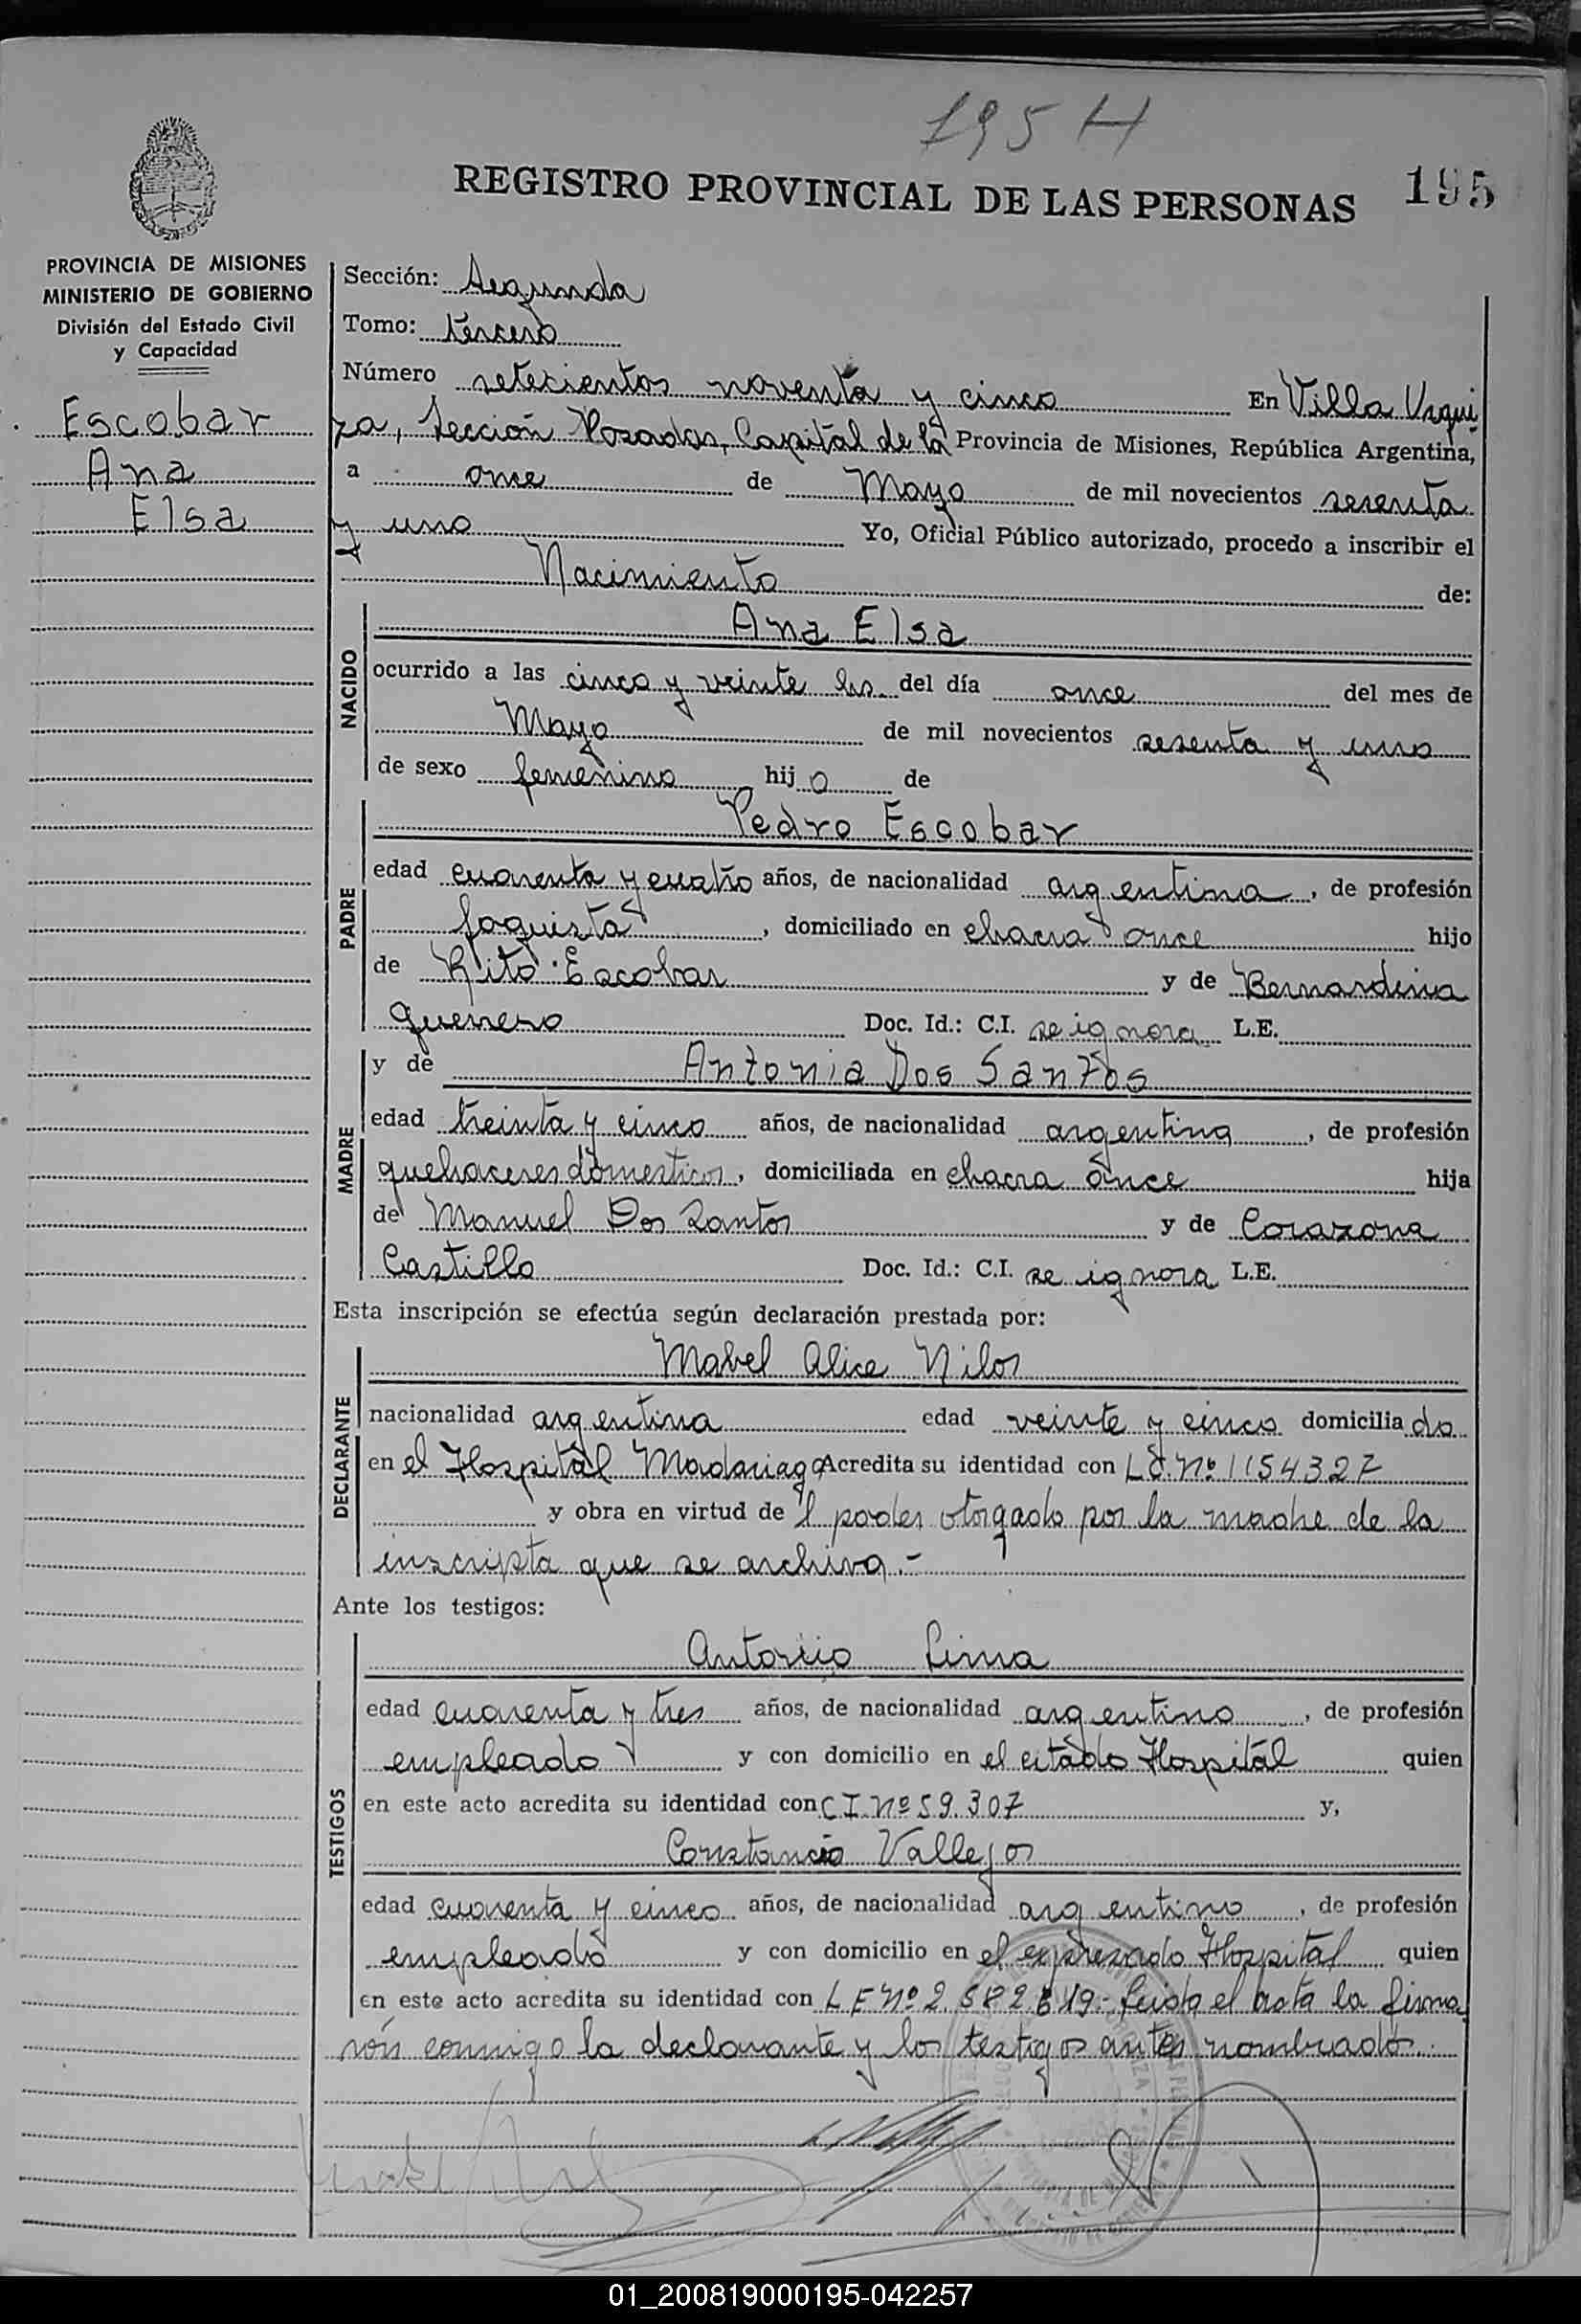 195 H
REGISTRO PROVINCIAL DE LAS PERSONAS 195
PROVINCIA DE MISIONES
MINISTERIO DE GOBIERNO
División del Estado Civil
y Capacidad
Escobar
Ana
Elsa
Sección: Segunda
Tomo: tercero
Número setecientos noventa y cinco En Villa Urqui
za, Sección Posadas, Capital de la Provincia de Misiones, República Argentina,
a once de Mayo de mil novecientos sesenta
y uno Yo, Oficial Público autorizado, procedo a inscribir el
Nacimiento de:
NACIDO
Ana Elsa
ocurrido a las cinco y veinte hs. del día once del mes de
Mayo de mil novecientos sesenta y uno
de sexo femenino hijo de
PADRE
Pedro Escobar
edad cuarenta y cuatro años, de nacionalidad argentina, de profesión
foguista, domiciliado en chacra once hijo
de Rito Escobar y de Bernardina
Guerrero Doc. Id.: C.I. se ignora L.E.
MADRE
y de Antonia Dos Santos
edad treinta y cinco años, de nacionalidad argentina, de profesión
quehaceres domesticos, domiciliada en chacra once hija
de Manuel Dos Santos y de Corazona
Castillo Doc. Id.: C.I. se ignora L.E.
Esta inscripción se efectúa según declaración prestada por:
DECLARANTE
Mabel Alice Nilos
nacionalidad argentina edad veinte y cinco domiciliado
en el Hospital Madariaga Acredita su identidad con L.C. Nº 1154327
y obra en virtud de l poder otorgado por la madre de la
inscripta que se archiva.-
Ante los testigos:
TESTIGOS
Antonio Lima
edad cuarenta y tres años, de nacionalidad argentino, de profesión
empleado y con domicilio en el citado Hospital quien
en este acto acredita su identidad con C I Nº 59.307 y,
Constancio Vallejos
edad cuarenta y cinco años, de nacionalidad argentino, de profesión
empleado y con domicilio en el expresado Hospital quien
en este acto acredita su identidad con L E Nº 2.582.819.- Leida el acta la firma
ron conmigo la declarante y los testigos antes nombrados.
01_200819000195-042257